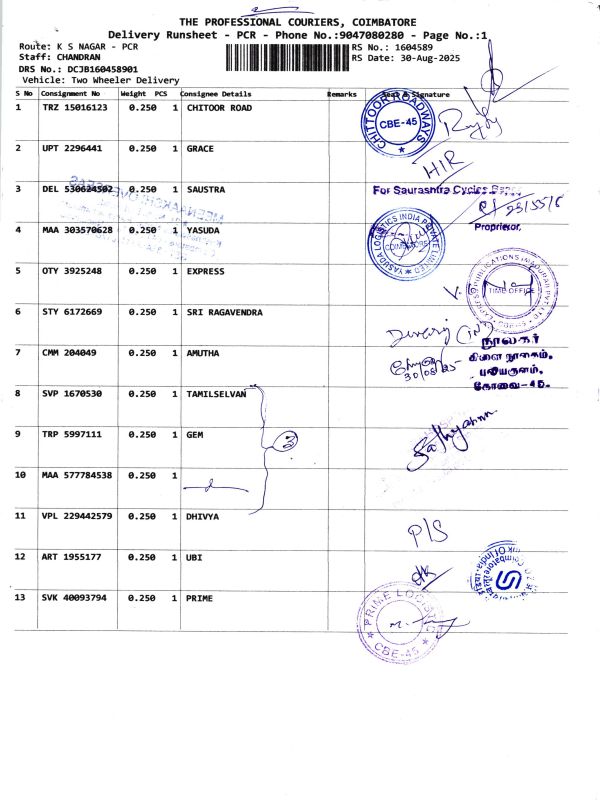 THE PROFESSIONAL COURIERS, COIMBATORE
Delivery Runsheet - PCR - Phone No.:9047080280 - Page No.:1
Route: K S NAGAR - PCR
RS No.: 1604589
Staff: CHANDRAN
RS Date: 30-Aug-2025
DRS No.: DCJB160458901
Vehicle: Two Wheeler Delivery
S No Consignment No Weight PCS Consignee Details Remarks Seal & Signature
1 TRZ 15016123 0.250 1 CHITOOR ROAD
CHITTOOR ROADWAYS
CBE-45
2 UPT 2296441 0.250 1 GRACE
H/R
3 DEL 530624502 0.250 1 SAUSTRA
For Saurashtra Cycles
Proprietor.
4 MAA 303570628 0.250 1 YASUDA
YASUDA LOGISTICS INDIA PRIVATE LIMITED
COIMBATORE
5 OTY 3925248 0.250 1 EXPRESS
TIME OFFICE
6 STY 6172669 0.250 1 SRI RAGAVENDRA
7 CMM 204049 0.250 1 AMUTHA
30/08/25
நூலகர்
கிளை நூலகம்,
புலியகுளம்,
கோவை-45.
8 SVP 1670530 0.250 1 TAMILSELVAN
9 TRP 5997111 0.250 1 GEM
3
Sathyanan
10 MAA 577784538 0.250 1
11 VPL 229442579 0.250 1 DHIVYA
P/S
12 ART 1955177 0.250 1 UBI
13 SVK 40093794 0.250 1 PRIME
PRIME LOGISTICS
CBE-45